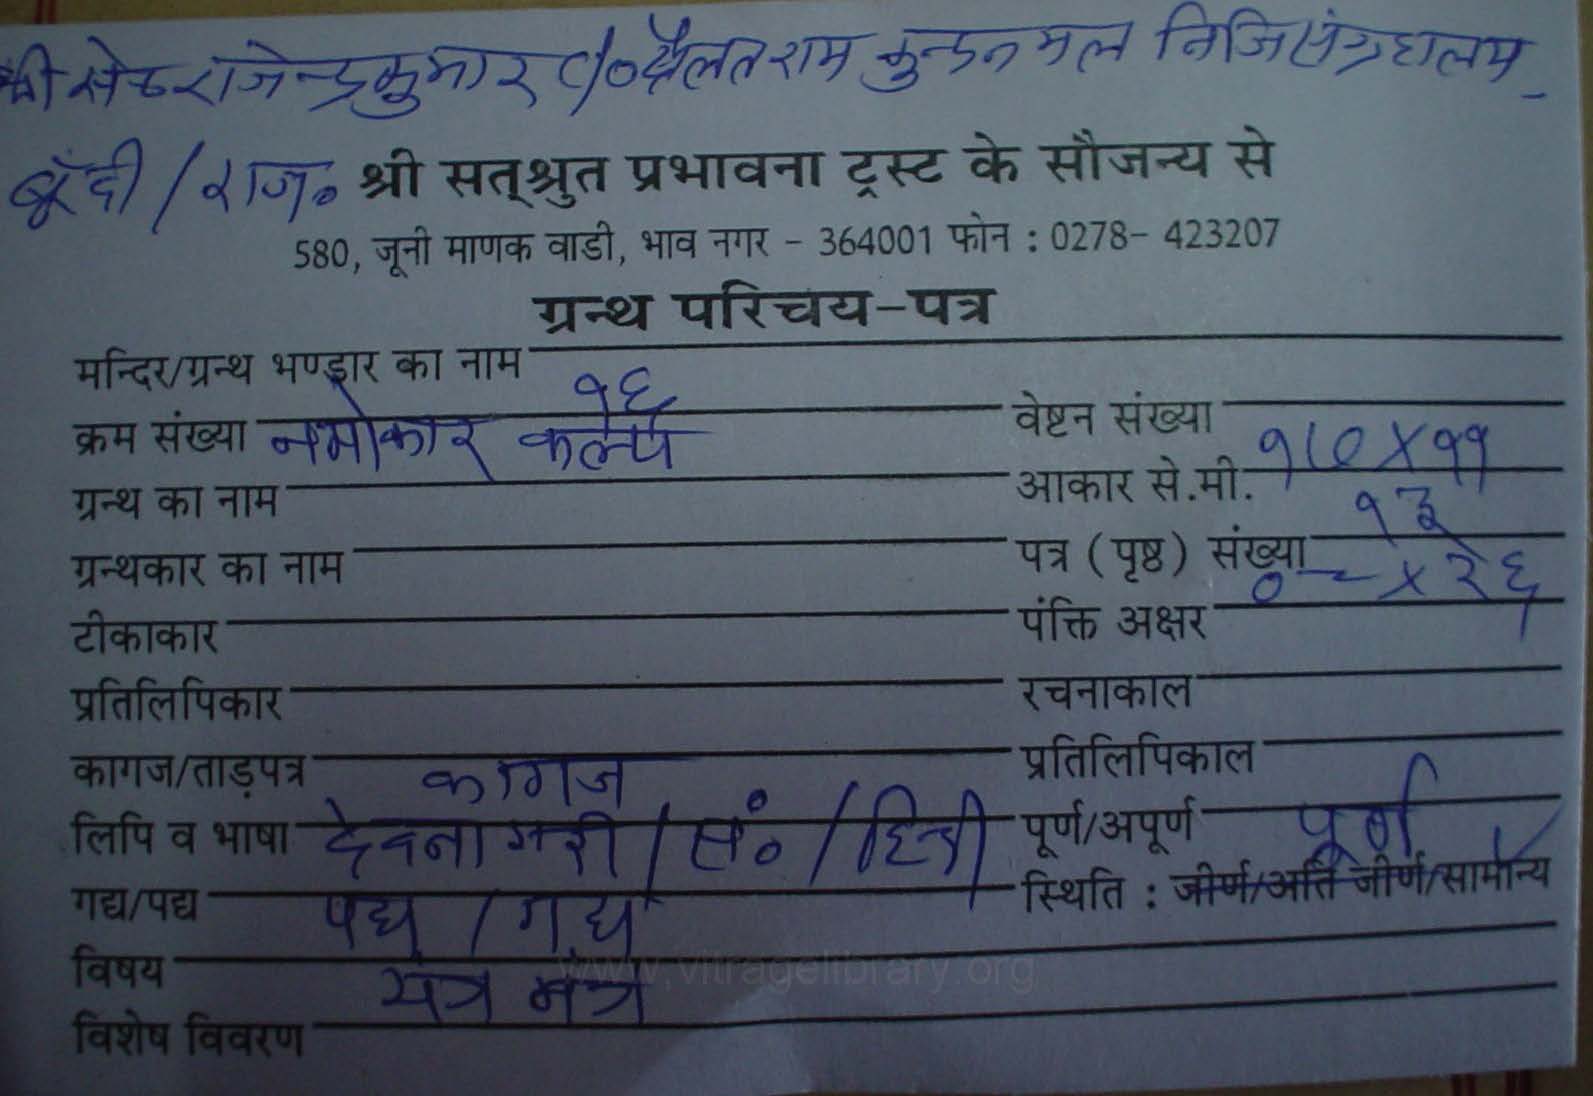 श्री सेठ राजेन्द्रकुमार c/० दौलतराम कुन्दनमल निजि संग्रहालय -
बूँदी / राज० श्री सत्श्रुत प्रभावना ट्रस्ट के सौजन्य से
580, जूनी माणक वाडी, भाव नगर - 364001 फोन : 0278- 423207
ग्रन्थ परिचय-पत्र
मन्दिर/ग्रन्थ भण्डार का नाम
क्रम संख्या १६ वेष्टन संख्या
ग्रन्थ का नाम नमोकार कल्प आकार से.मी. १७ X ११
ग्रन्थकार का नाम पत्र (पृष्ठ) संख्या १३
टीकाकार पंक्ति अक्षर X २६
प्रतिलिपिकार रचनाकाल
कागज/ताड़पत्र कागज प्रतिलिपिकाल
लिपि व भाषा देवनागरी / सं० / हिन्दी पूर्ण/अपूर्ण पूर्ण
गद्य/पद्य पद्य / गद्य स्थिति : जीर्ण/अति जीर्ण/सामान्य
विषय यंत्र मंत्र
विशेष विवरण
www.vitragelibrary.org